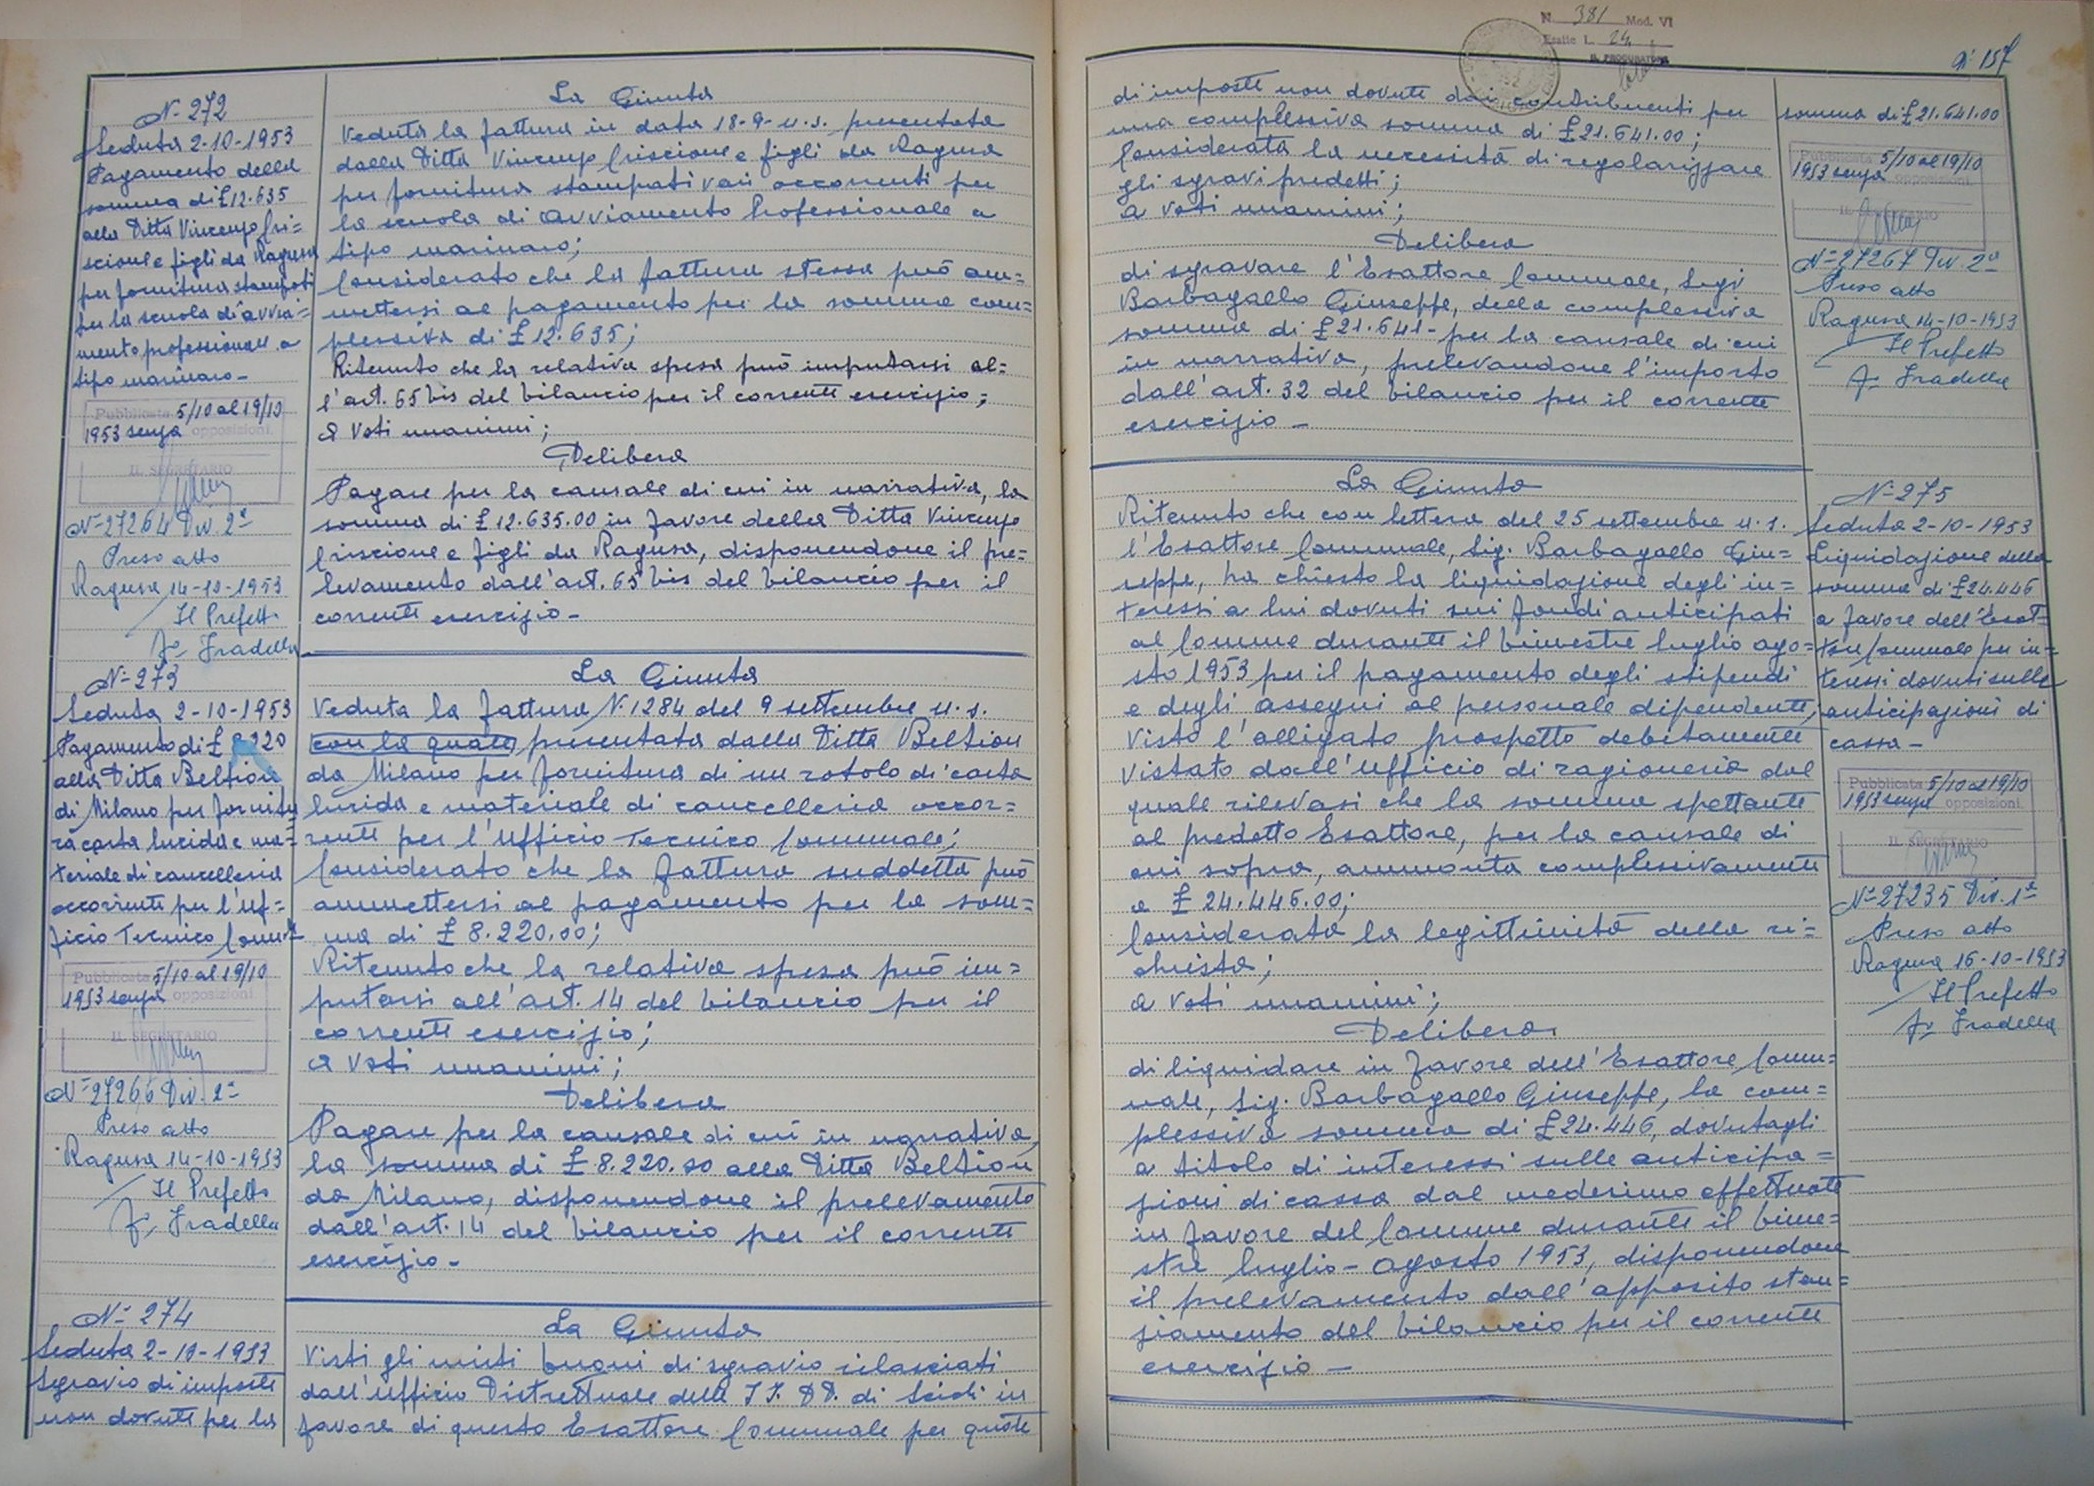 N. 272
Seduta 2-10-1953
Pagamento della
somma di £12.635
alla Ditta Vincenzo Cri=
scione e figli da Ragusa
per fornitura stampati
per la scuola di avvia=
mento professionale a
tipo marinaro-
Pubblicata 5/10 al 19/10
1953 senza opposizioni.
IL SEGRETARIO
N= 27264 Div. 2ª
Preso atto
Ragusa 14-10-1953
Il Prefetto
Fº Fradella
N= 273
Seduta 2-10-1953
Pagamento di £ 8220
alla Ditta Beltion
di Milano per fornitu
ra carta lucida e ma=
teriale di cancelleria
occorrente per l'Uf=
ficio Tecnico Com.le
Pubblicata 5/10 al 19/10
1953 senza opposizioni
IL SEGRETARIO
N= 27266 Div. 2ª
Preso atto
Ragusa 14-10-1953
Il Prefetto
Fº Fradella
N= 274
Seduta 2-10-1953
Sgravio di imposte
non dovute per la
La Giunta
Veduta la fattura in data 18-9-u.s. presentata
dalla Ditta Vincenzo Criscione e figli da Ragusa
per fornitura stampati vari occorrenti per
la scuola di Avviamento Professionale a
tipo marinaro;
Considerato che la fattura stessa può am=
mettersi al pagamento per la somma com=
plessiva di £ 12.635;
Ritenuto che la relativa spesa può imputarsi al=
l'art. 65 bis del bilancio per il corrente esercizio;
A voti unanimi;
Delibera
Pagare per la causale di cui in narrativa, la
somma di £ 12.635.00 in favore della Ditta Vincenzo
Criscione e figli da Ragusa, disponendone il pre=
levamento dall'art. 65 bis del bilancio per il
corrente esercizio-
La Giunta
Veduta la fattura N. 1284 del 9 settembre u.s.
con la quale presentata dalla Ditta Beltion
da Milano per fornitura di un rotolo di carta
lucida e materiale di cancelleria occor=
rente per l'Ufficio Tecnico Comunale;
Considerato che la fattura suddetta può
ammettersi al pagamento per la som=
ma di £ 8.220.00;
Ritenuto che la relativa spesa può im=
putarsi all'art. 14 del bilancio per il
corrente esercizio;
A voti unanimi;
Delibera
Pagare per la causale di cui in narrativa,
la somma di £ 8.220.00 alla Ditta Beltion
da Milano, disponendone il prelevamento
dall'art. 14 del bilancio per il corrente
esercizio-
La Giunta
Visti gli uniti buoni di sgravio rilasciati
dall'Ufficio Distrettuale delle II. DD. di Scicli in
favore di questo Esattore Comunale per quote
N. 381 Mod. VI
Esatte L. 24
IL PROCURATORE
N: 157
di imposte non dovute dai contribuenti per
una complessiva somma di £ 21.641.00;
Considerata la necessità di regolarizzare
gli sgravi predetti;
a voti unanimi;
Delibera
di sgravare l'Esattore Comunale, Sigr
Barbagallo Giuseppe, della complessiva
somma di £ 21.641- per la causale di cui
in narrativa, prelevandone l'importo
dall'art. 32 del bilancio per il corrente
esercizio-
La Giunta
Ritenuto che con lettera del 25 settembre u.s.
l'Esattore Comunale, Sig. Barbagallo Giu=
seppe, ha chiesto la liquidazione degli in=
teressi a lui dovuti sui fondi anticipati
al Comune durante il bimestre luglio ago=
sto 1953 per il pagamento degli stipendi
e degli assegni al personale dipendente;
Visto l'alligato prospetto debitamente
vistato dall'ufficio di ragioneria dal
quale rilevasi che la somma spettante
al predetto Esattore, per la causale di
cui sopra, ammonta complessivamente
a £ 24.446.00;
Considerata la legittimità della ri=
chiesta;
a voti unanimi;
Delibera
di liquidare in favore dell'Esattore Comu=
nale, Sig. Barbagallo Giuseppe, la com=
plessiva somma di £ 24.446, dovutagli
a titolo di interessi sulle anticipa=
zioni di cassa dal medesimo effettuate
in favore del Comune durante il bime=
stre luglio-Agosto 1953, disponendone
il prelevamento dall'apposito stan=
ziamento del bilancio per il corrente
esercizio-
somma di £ 21.641.00
Pubblicata 5/10 al 19/10
1953 senza opposizioni
IL SEGRETARIO
N= 27267 Div. 2ª
Preso atto
Ragusa 14-10-1953
Il Prefetto
Fº Fradella
N= 275
Seduta 2-10-1953
Liquidazione della
somma di £24.446
a favore dell'Esat=
tore Comunale per in=
teressi dovuti sulle
anticipazioni di
cassa-
Pubblicata 5/10 al 19/10
1953 senza opposizioni
IL SEGRETARIO
N= 27235 Div. 1ª
Preso atto
Ragusa 16-10-1953
Il Prefetto
Fº Fradella